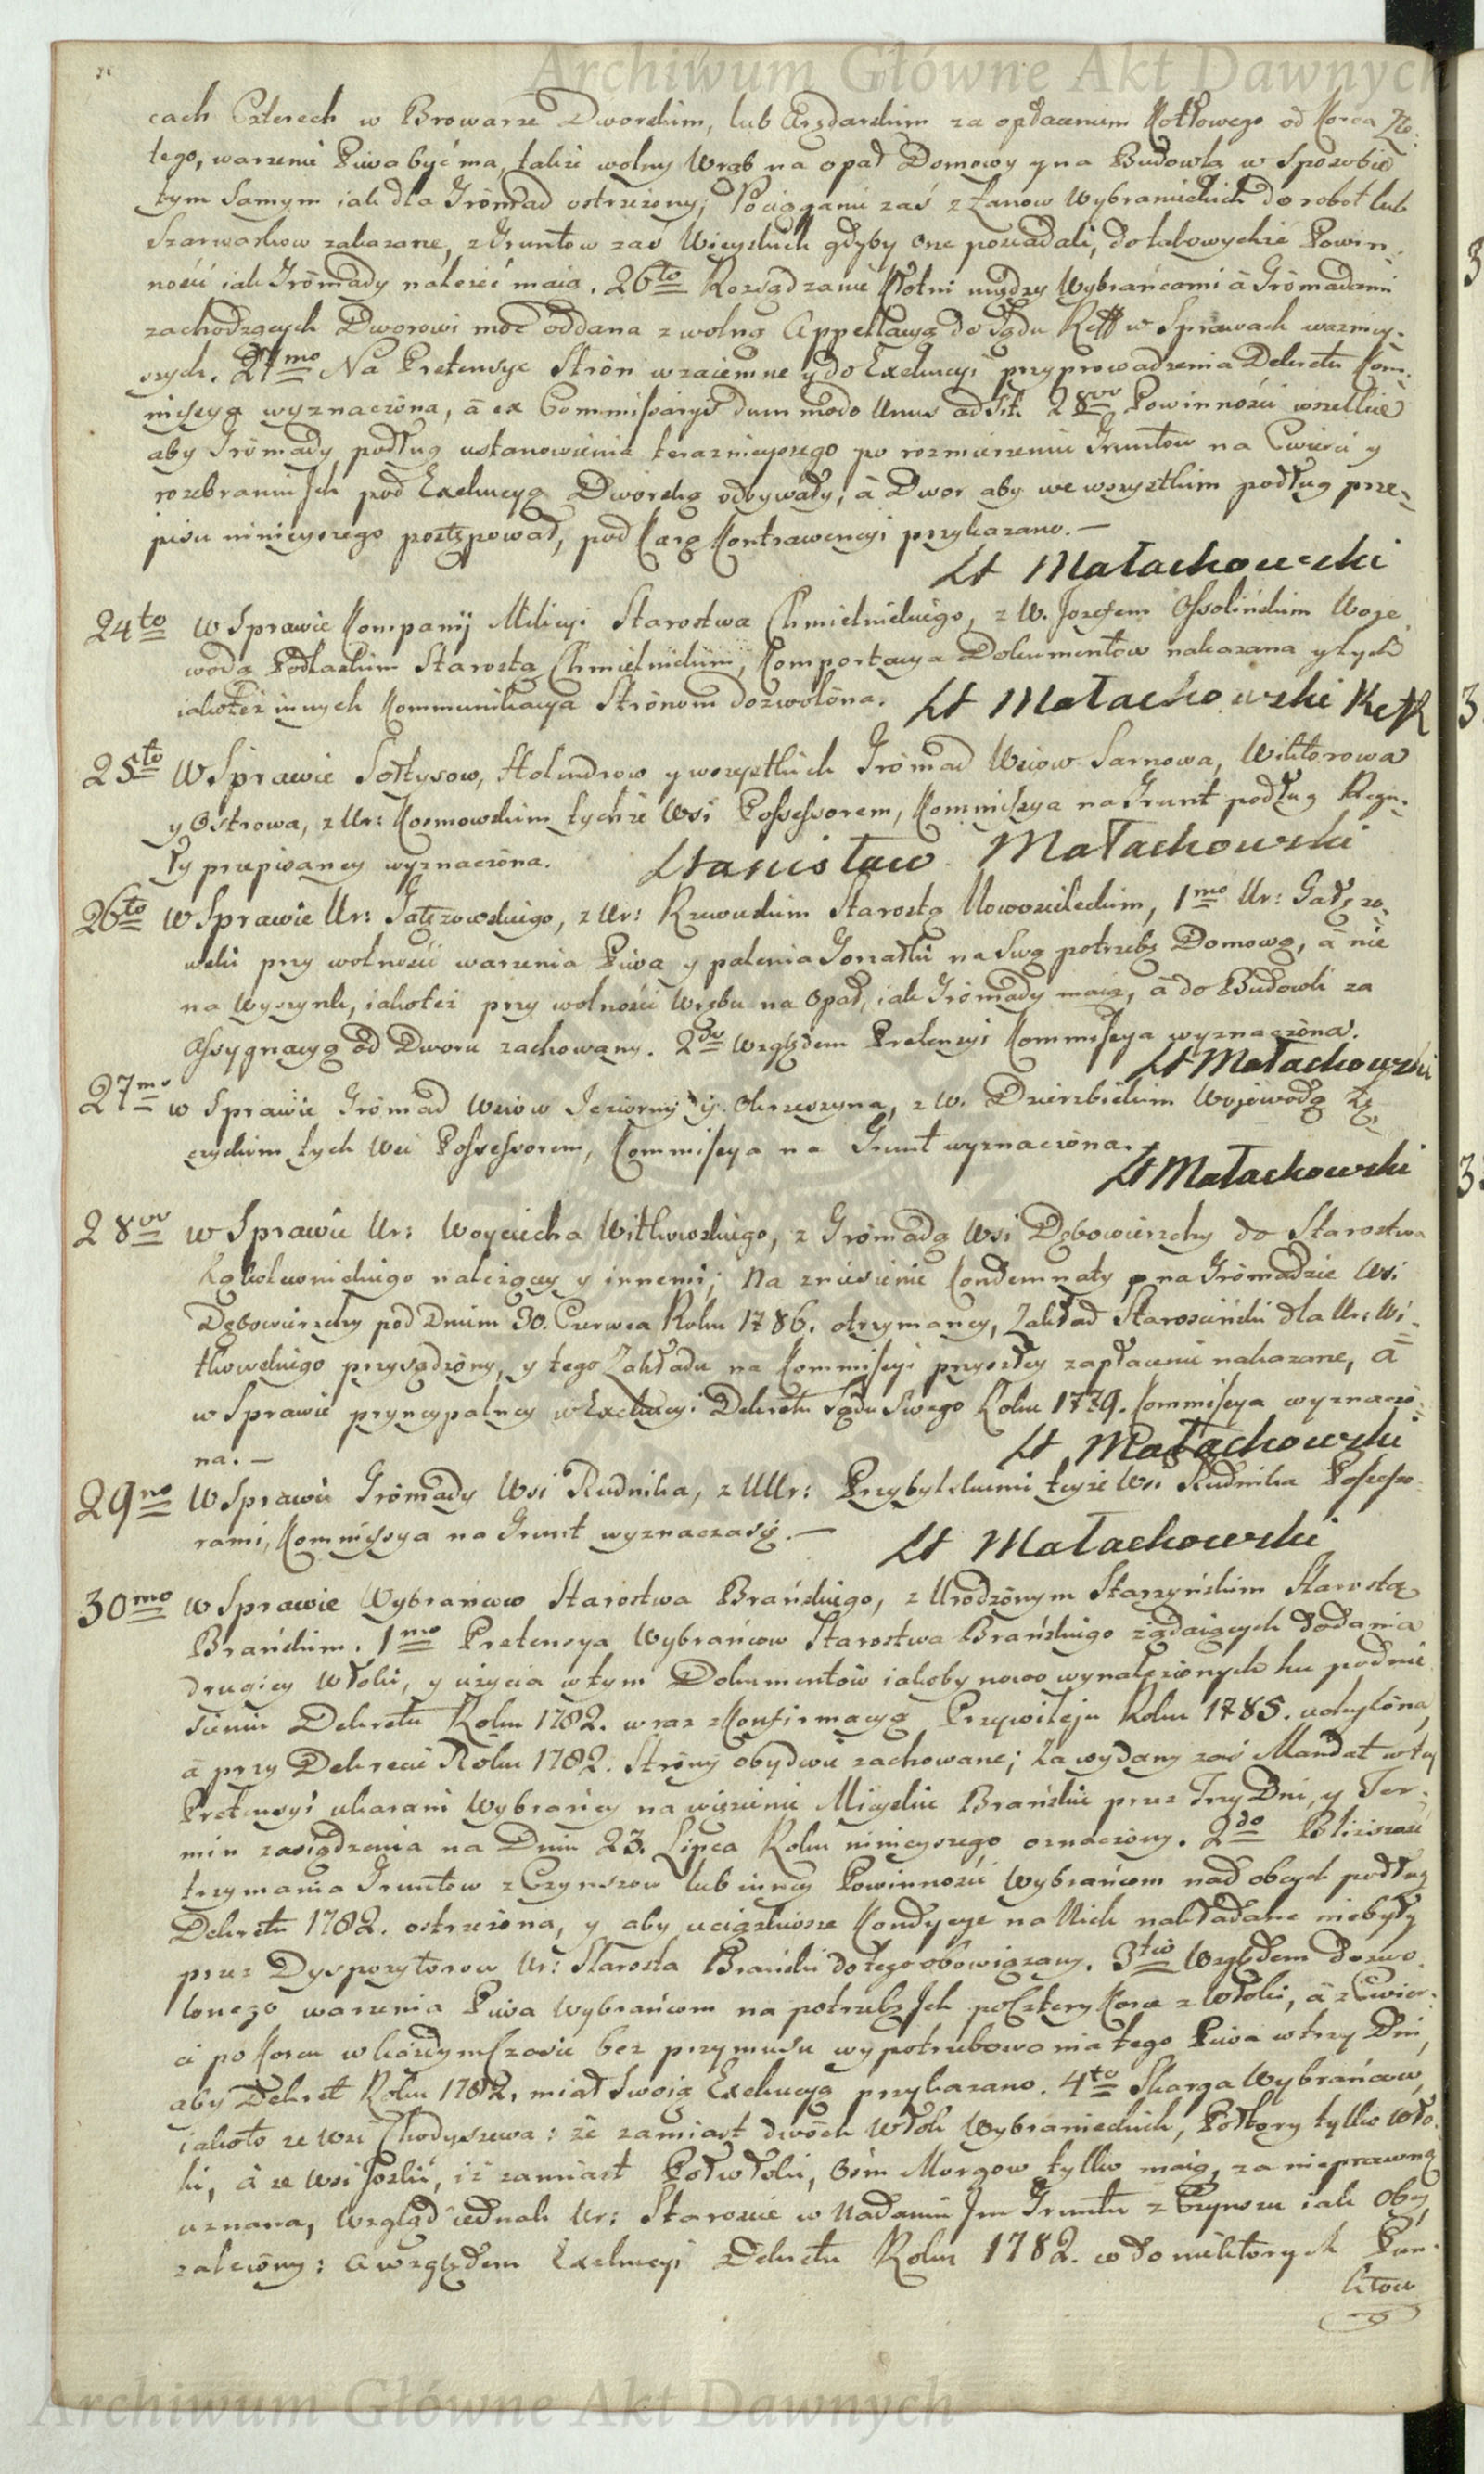 Archiwum Główne Akt Dawnych
cach Czterech w Browarze Dworskim, lub Arędarskim za opłaceniem Kotłowego od Korca Zło-
tego, warzenie Piwa być ma, także wolny Wrąb na opał Domowy y na Budowlą w Sposobie
tym samym iak dla Gromad ostrzeżony; Pociąganie zaś z Łanow Wybranieckich do robot lub
Szarwarkow zakazane, z Gruntow zaś Wieyskich gdyby one posiadali, do takowychże Powin-
ności iak Gromady należeć maią. 26to Rozsądzanie Kłotni między Wybrańcami à Gromadami
zachodzących Dworowi moc oddana z wolną Appellacyą do Sądu Reff w Sprawach ważniey-
szych. 27mo Na Pretensye Stron wzaiemne y do Exekucyi przyprowadzenia Dekretu Kom-
missya wyznaczona, à ex Commissarys dum modo Unus adsit. 28vo Powinności wszelkie
aby Gromady podług ustanowienia teraznieyszego po rozmierzeniu Gruntow na Cwierci y
rozebraniu Ich pod Exekucyą Dworską odbywały, à Dwor aby we wszystkim podług prze-
pisu ninieyszego postępował, pod Karą Kontrawencyi przykazano. —
St Małachowski
24to W Sprawie Kompanij Milicyi Starostwa Chmielnickiego, z W. Jozefem Ossolińskim Woje-
wodą Podlaskim Starostą Chmielnickim, Komportacya Dokumentow nakazana y tych
iakoteż innych Kommunikacya Stronom dozwolona. St Małachowski RKR
25to W Sprawie Sołtysow, Holendrow y wszystkich Gromad Wsiow Sarnowa, Wiktorowa
y Ostrowa, z Ur: Kosmowskim tychże Wsi Possessorem, Kommissya na Grunt podług Regu-
ły przepisaney wyznaczona. Stanisław Małachowski
26to W Sprawie Ur: Gałęzowskiego, z Ur: Rzewuskim Starostą Nowosieleckim, 1mo Ur: Gałęzo-
wski przy wolności warzenia Piwa y palenia Gorzałki na Swą potrzebę Domową, à nie
na Wyszynk, iakoteż przy wolności Wrębu na Opał, iak Gromady maią, à do Budowli za
Assygnacyą od Dworu zachowany. 2do Względem Pretensyi Kommissya wyznaczona.
St Małachowski
27mo w Sprawie Gromad Wsiow Jeziorny y Obrzeszyna, z W. Dzierzbickim Wojewodą Łę-
czyckim tych Wsi Possessorem, Kommissya na Grunt wyznaczona.
St Małachowski
28vo W Sprawie Ur: Woyciecha Witkowskiego, z Gromadą Wsi Dębowierzchy do Starostwa
Kąkolewnickiego należącey y innemi; Na zniesienie Kondemnaty na Gromadzie Wsi
Dębowierzchy pod Dniem 30. Czerwca Roku 1786. otrzymaney, Zakład Starościński dla Ur: Wi-
tkowskiego przysądzony, y tego Zakładu na Kommissyi przyszłey zapłacenie nakazane, à
w Sprawie pryncypalney w Exekucyi Dekretu Sądu Swego Roku 1779. Kommissya wyznaczo-
na. —
St Małachowski
29no W Sprawie Gromady Wsi Rudnika, z UUr: Przybylskiemi teyże Wsi Rudnika Possesso-
rami, Kommissya na Grunt wyznacza się. —
St Małachowski
30mo W Sprawie Wybrańcow Starostwa Brańskiego, z Urodzonym Starzyńskim Starostą
Brańskim. 1mo Pretensya Wybrańcow Starostwa Brańskiego żądaiących dodania
drugiey Włoki, y użycia w tym Dokumentow iakoby nowo wynalezionych ku podnie-
sieniu Dekretu Roku 1782. wraz z Konfirmacyą Przywileju Roku 1785. uchylona,
à przy Dekrecie Roku 1782. Strony obydwie zachowane; Za wydany zaś Mandat w tey
Pretensyi ukarani Wybrańcy na więzienie Mieyskie Brańskie przez Trzy Dni, y Ter-
min zasiądzenia na Dniu 23. Lipca Roku ninieyszego oznaczony. 2do Bliższość
trzymania Gruntow z Czynszow lub inney Powinności Wybrańcom nad obcych podług
Dekretu 1782. ostrzeżona, y aby uciążliwsze Kondycye na Nich nakładane niebyły
przez Dyspozytorow Ur: Starosta Brański do tego obowiązany. 3tio Względem dozwo-
lonego warzenia Piwa Wybrańcom na potrzebę Ich po Cztery Korce z Włoki, à z Cwier-
ci po Korcu w każdym Czasie bez przymusu wypotrzebowania tego Piwa w trzy Dni,
aby Dekret Roku 1782. miał Swoią Exekucyą przykazano. 4to Skarga Wybrańcow,
iakoto ze Wsi Chodyszewa: że zamiast dwóch Włok Wybranieckich, Połtory tylko Wło-
ki, à ze Wsi Joskie, iż zamiast Poł Włoki, Osm Morgow tylko maią, za nieprawną
uznana, Wzgląd iednak Ur: Staroscie w Nadaniu Im Gruntu z Czynszu iak Oby,
zalecony: à względem Exekucyi Dekretu Roku 1782. co do niektorych Pun-
ktow
Archiwum Główne Akt Dawnych